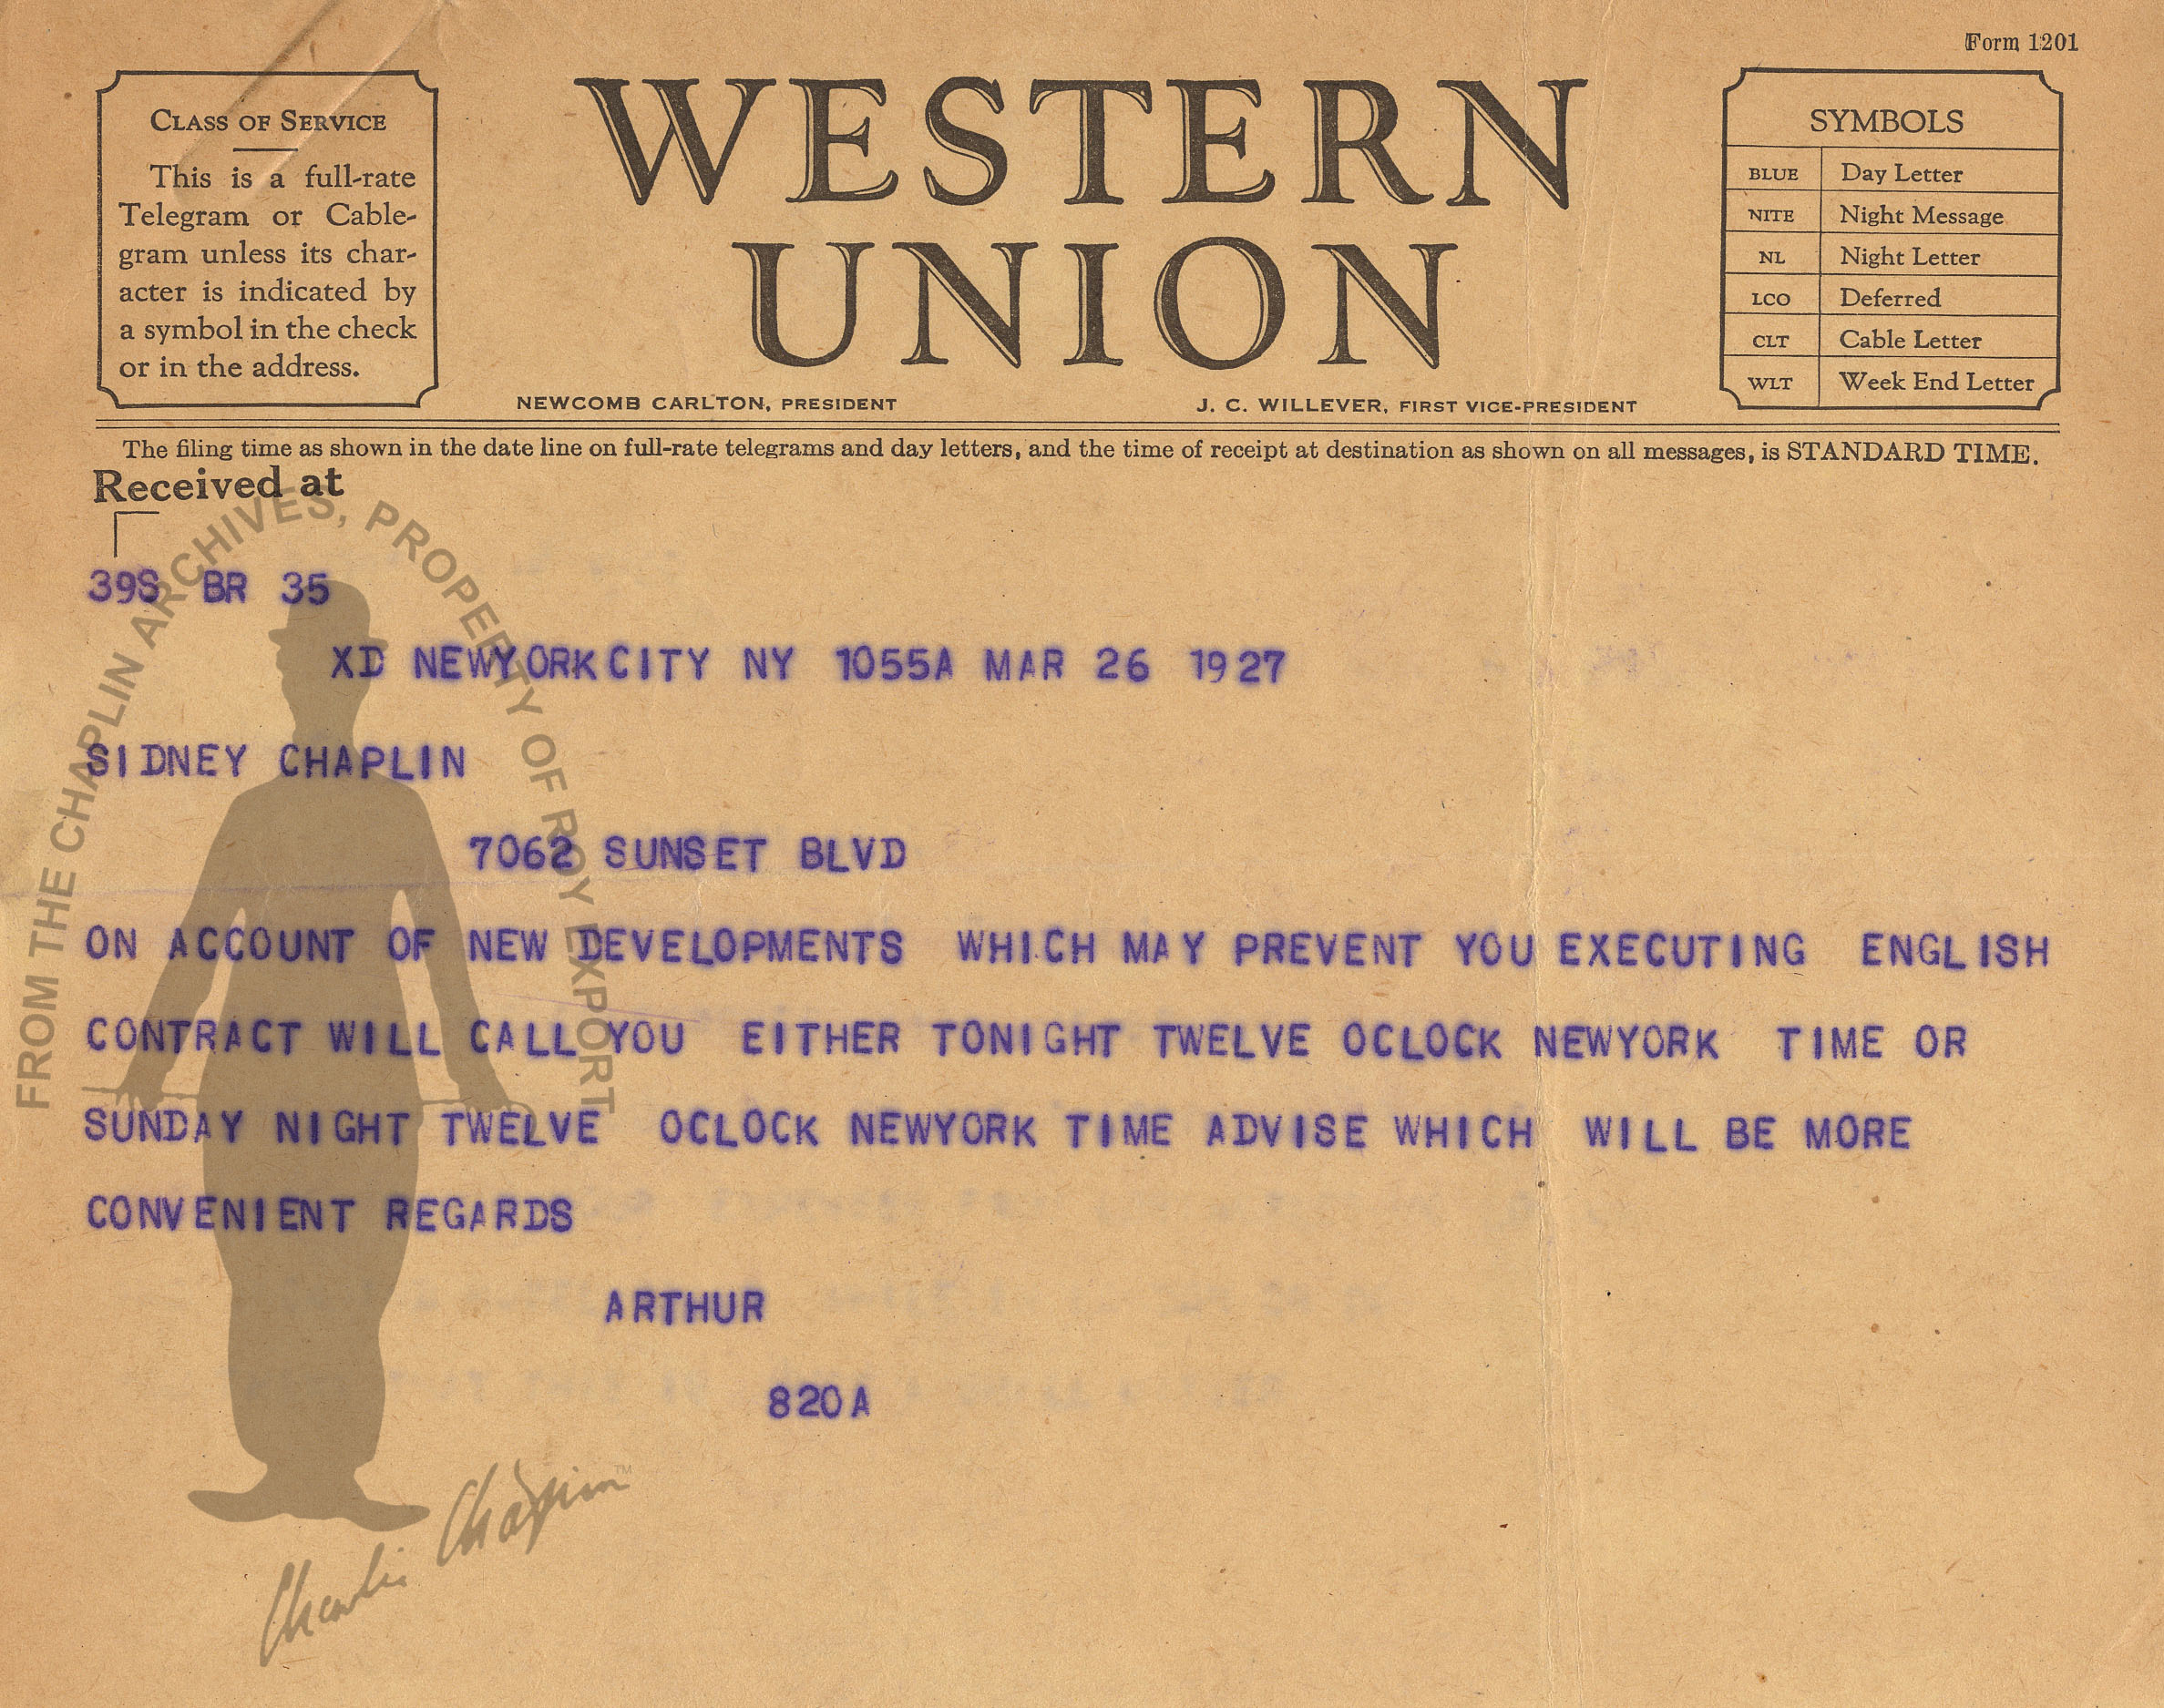 Form 1201
CLASS OF SERVICE
This is a full-rate
Telegram or Cable-
gram unless its char-
acter is indicated by
a symbol in the check
or in the address.
WESTERN
UNION
NEWCOMB CARLTON, PRESIDENT
J. C. WILLEVER, FIRST VICE-PRESIDENT
SYMBOLS
BLUE Day Letter
NITE Night Message
NL Night Letter
LCO Deferred
CLT Cable Letter
WLT Week End Letter
The filing time as shown in the date line on full-rate telegrams and day letters, and the time of receipt at destination as shown on all messages, is STANDARD TIME.
Received at
39S BR 35
XD NEWYORKCITY NY 1055A MAR 26 1927
SIDNEY CHAPLIN
7062 SUNSET BLVD
ON ACCOUNT OF NEW DEVELOPMENTS WHICH MAY PREVENT YOU EXECUTING ENGLISH
CONTRACT WILL CALL YOU EITHER TONIGHT TWELVE OCLOCK NEWYORK TIME OR
SUNDAY NIGHT TWELVE OCLOCK NEWYORK TIME ADVISE WHICH WILL BE MORE
CONVENIENT REGARDS
ARTHUR
820A
FROM THE CHAPLIN ARCHIVES, PROPERTY OF ROY EXPORT
Charlie Chaplin TM